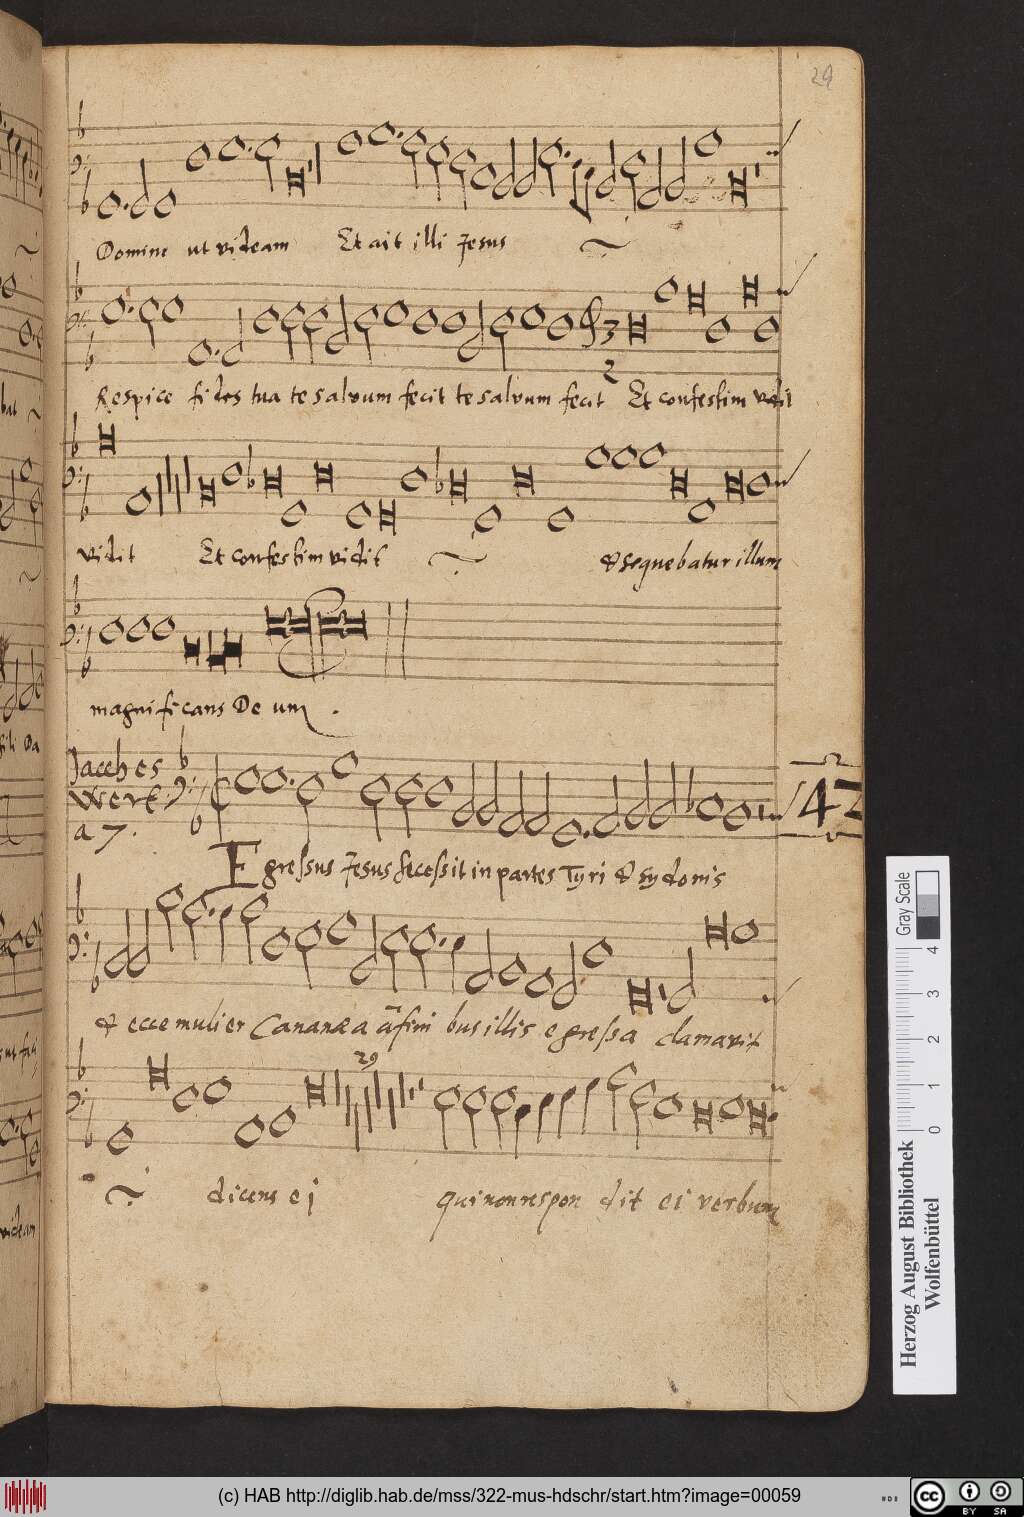 29
Domine ut videam Et ait illi Jesus
Respice fides tua te salvum fecit te salvum fecit Et confestim vidit
3
2
vidit Et confestim vidit & sequebatur illum
magnificans Deum.
Jacches
Wert
a 7.
42
Egressus Jesus secessit in partes Tyri & sydonis
& ecce mulier Cananæa a finibus illis egressa clamavit
29
dicens ei qui non respondit ei verbum
Gray Scale
4
3
2
1
0
Herzog August Bibliothek
Wolfenbüttel
(c) HAB http://diglib.hab.de/mss/322-mus-hdschr/start.htm?image=00059
cc
BY SA